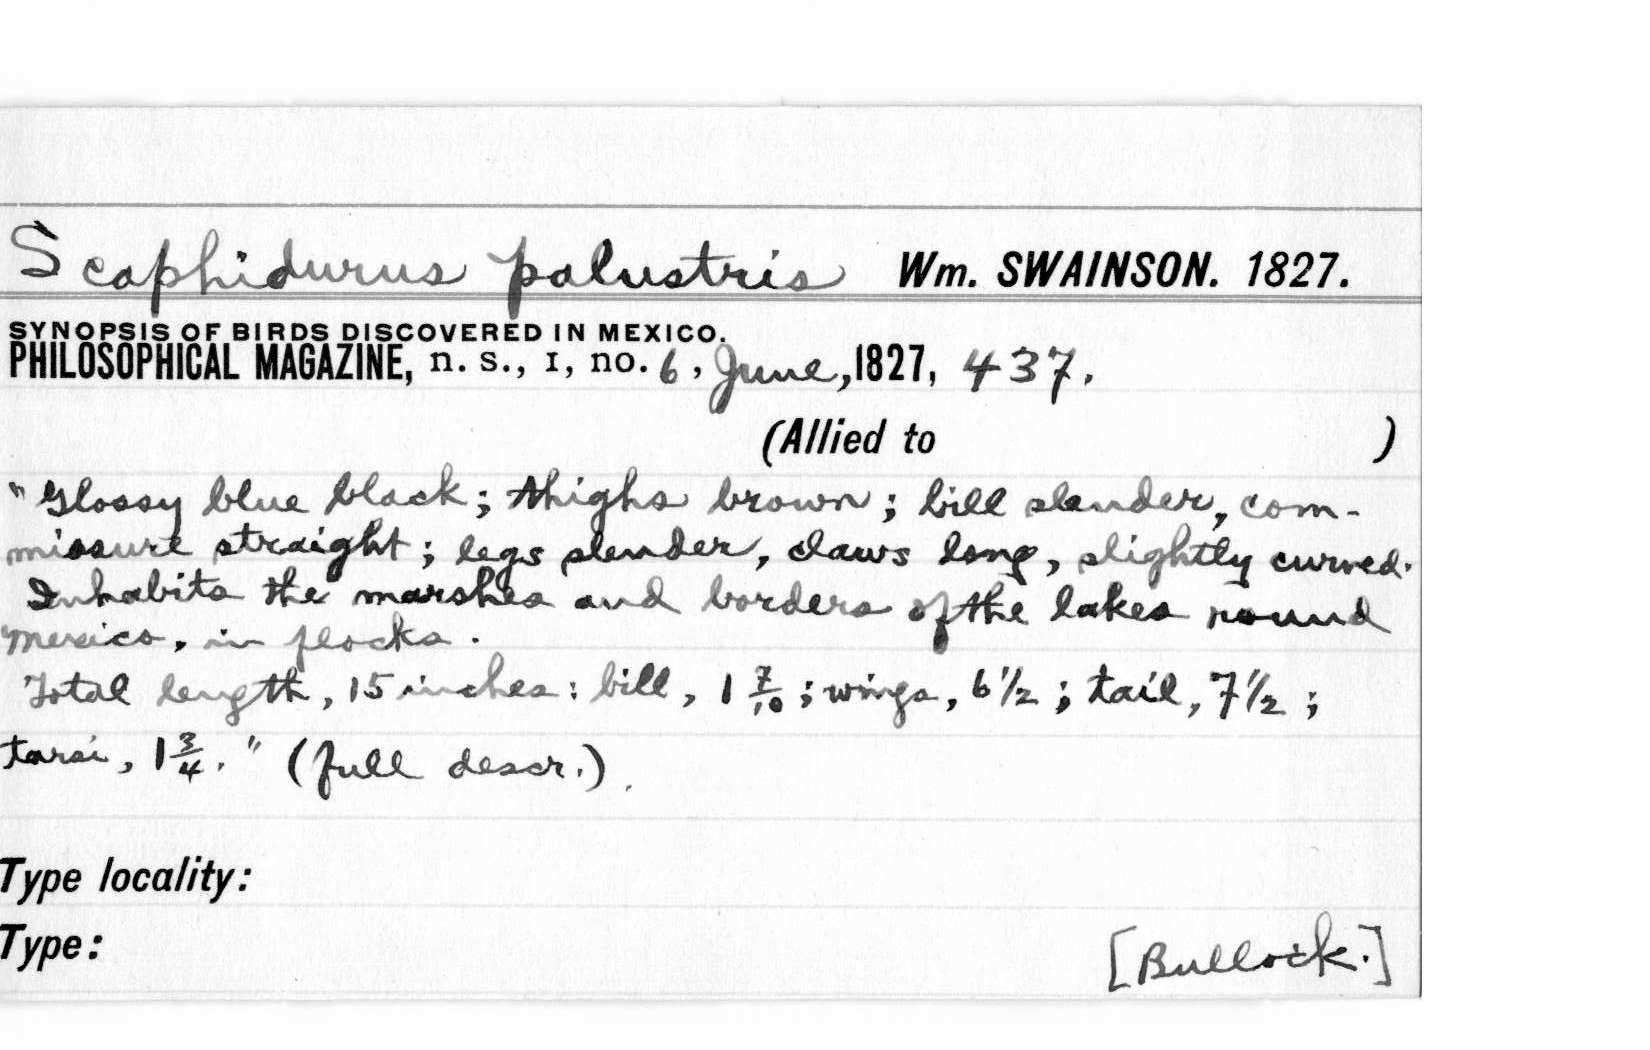 Scaphidurus palustris Wm. SWAINSON. 1827.
SYNOPSIS OF BIRDS DISCOVERED IN MEXICO.
PHILOSOPHICAL MAGAZINE, n. s., I, no. 6, June, 1827, 437.
(Allied to )
"Glossy blue black; thighs brown; bill slender, com-
missure straight; legs slender, claws long, slightly curved.
Inhabits the marshes and borders of the lakes round
Mexico, in flocks.
Total length, 15 inches: bill, 1 7/10; wings, 6 1/2; tail, 7 1/2;
tarsi, 1 3/4." (full descr.).
Type locality:
Type: [Bullock.]